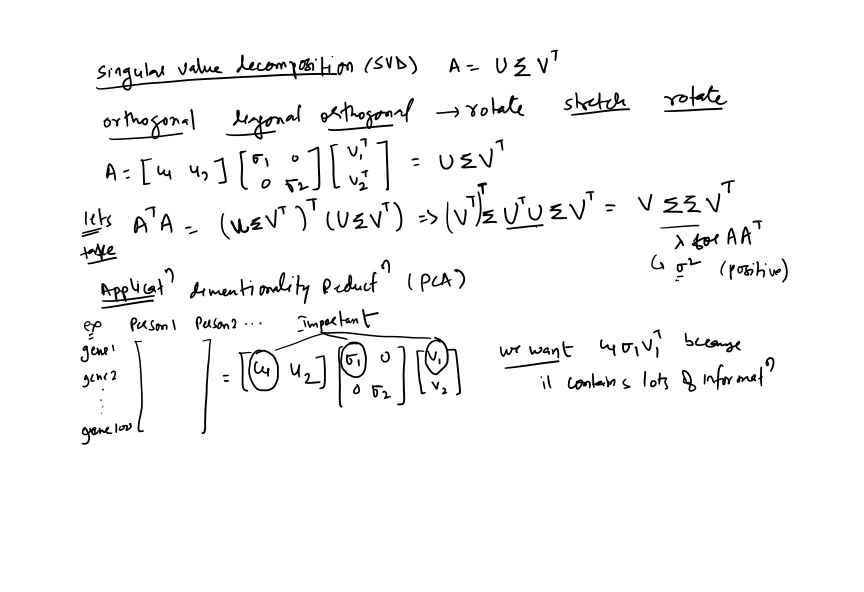 Singular value decomposition (SVD) A = U Σ Vᵀ
orthogonal diagonal orthogonal → rotate stretch rotate
A = [u₁ u₂] [σ₁ 0 0 σ₂] [v₁ᵀ v₂ᵀ] = U Σ Vᵀ
lets take AᵀA = (UΣVᵀ)ᵀ (UΣVᵀ) => (Vᵀ)ᵀΣ UᵀU ΣVᵀ = V ΣΣ Vᵀ
λ for AAᵀ
↳ σ² (positive)
Applicatⁿ dimentionality Reductⁿ (PCA)
ex Person1 Person2 ... Important
gene1
gene2
⋮
gene100
= [u₁ u₂] [σ₁ 0 0 σ₂] [v₁ v₂]
we want u₁σ₁v₁ᵀ because
it contains lots of informatⁿ